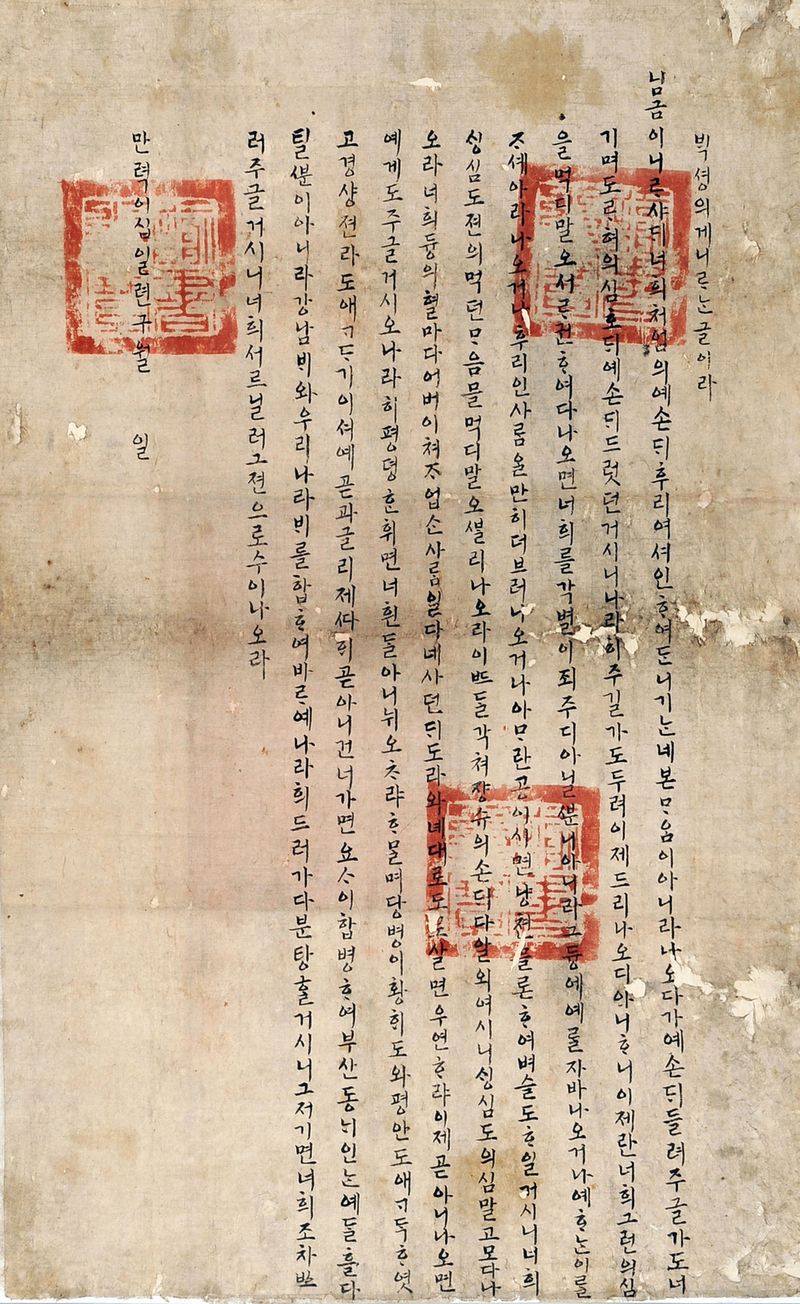 빅셩의게니ᄅᆞᄂᆞᆫ글이라
님금이니ᄅᆞ샤ᄃᆡ너희처엄의예손ᄃᆡ후리여셔인ᄒᆞ여ᄃᆞᆫ니기ᄂᆞᆫ네본ᄆᆞ음이아니라나오다가예손ᄃᆡ들려주글가도너
기며도ᄅᆞ혀의심ᄒᆞᄃᆡ예손ᄃᆡ드럿던거시니나라히주길가도두려이제드리나오디아니ᄒᆞ니이제란너희그런의심
을먹디말오서ᄅᆞ권ᄒᆞ여다나오면너희를각별이죄주디아닐ᄲᅮᆫ니아니라그듕에예ᄅᆞᆯ자바나오거나예ᄒᆞᄂᆞᆫ이를
ᄌᆞ셰아라나오거나후리인사ᄅᆞᆷ을만히더브러나오거나아ᄆᆞ란공이시면냥쳔믈론ᄒᆞ여벼슬도ᄒᆞ일거시니너희
ᄉᆡᆼ심도젼의먹던ᄆᆞ음믈먹디말오ᄲᆞᆯ리나오라이ᄠᅳ들각쳐쟝슈의손ᄃᆡ다알외여시니ᄉᆡᆼ심도의심말고모다나
오라너희듕의혈마다어버이쳐ᄌᆞ업순사ᄅᆞᆷ일다녜사던ᄃᆡ도라와녜대로도로살면우연ᄒᆞ랴이제곧아니나오면
예게도주글거시오나라히평뎡ᄒᆞᆫ휘면너흰ᄃᆞᆯ아니뉘오ᄎᆞ랴ᄒᆞᄆᆞᆯ며당병이황ᄒᆡ도와평안도애ᄀᆞᄃᆞᆨᄒᆞ엿
고경샹젼라도애ᄀᆞᄃᆞ기이셔예곧과글리제ᄯᅡ희곧아니건너가면요ᄉᆞ이합병ᄒᆞ여부산동ᄂᆡ인ᄂᆞᆫ예ᄃᆞᆯ흘다
틸ᄲᅮᆫ이아니라강남ᄇᆡ와우리나라ᄇᆡ를합ᄒᆞ여바ᄅᆞ예나라희드러가다분탕ᄒᆞᆯ거시니그저기면너희조차ᄡᅳ
러주글거시니너희서ᄅᆞ닐러그젼으로수이나오라
만력이십일년구월 일